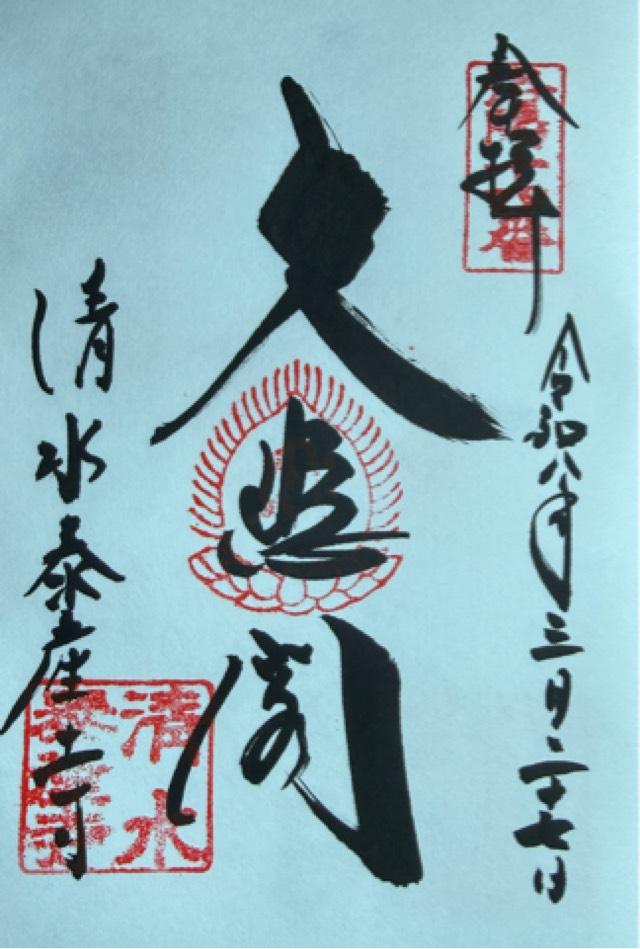 奉拝
令和八年三月二十七日
大悲閣
清水泰産寺
清水
泰産寺